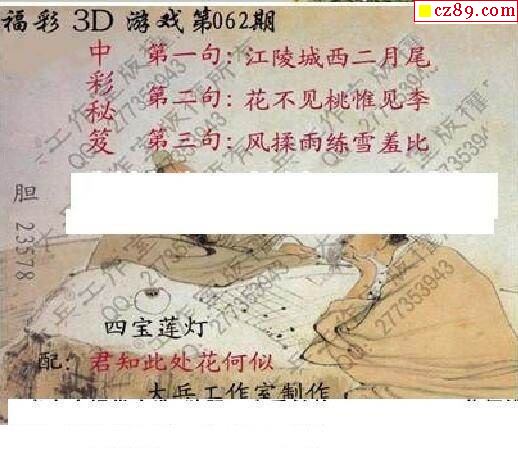 cz89.com
福彩 3D 游戏 第062期
中彩秘笈
第一句：江陵城西二月尾
第二句：花不见桃惟见李
第三句：风揉雨练雪羞比
胆 23578
四宝莲灯
配：君知此处花何似
大兵工作室制作
大兵工作室版權所有
QQ:277353943